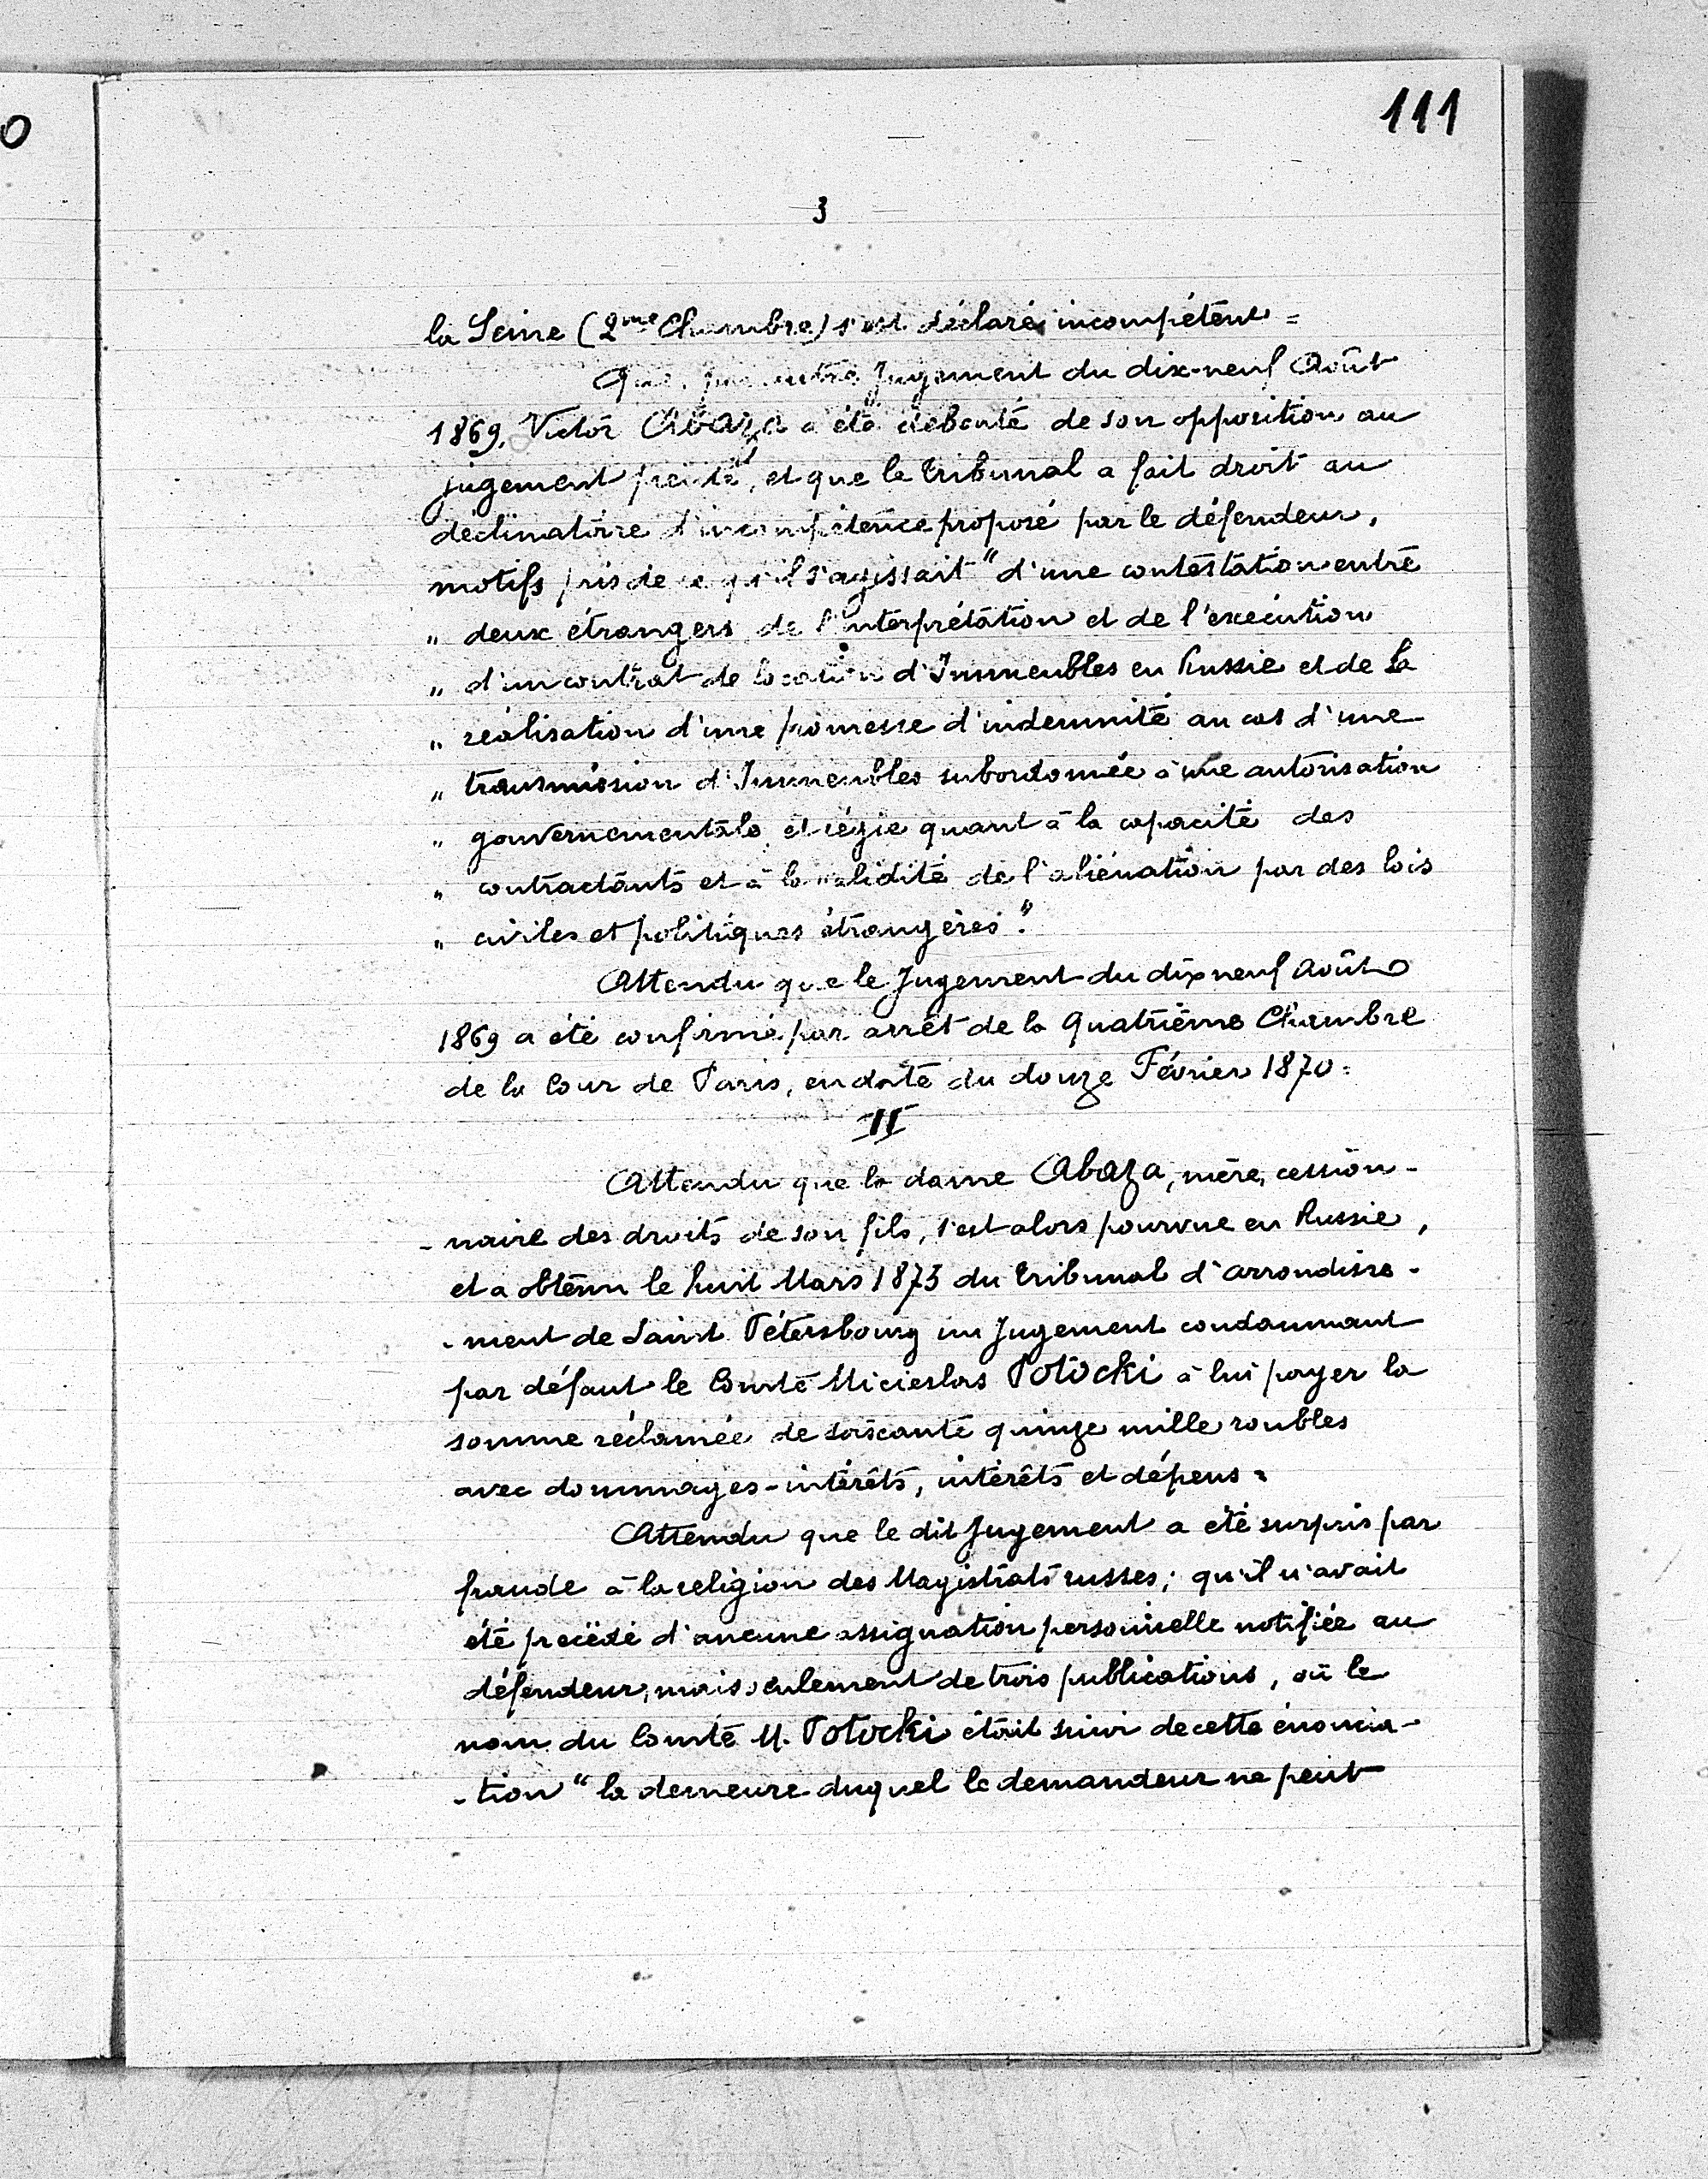 0
111
3
la Seine (2me Chambre) s'est déclaré incompétent =
Que, par autre Jugement du dix-neuf Août
1869, Victor Abaza a été débouté de son opposition au
jugement précité, et que le tribunal a fait droit au
déclinatoire d'incompétence proposé par le défendeur,
motifs pris de ce qu'il s'agissait "d'une contestation entre
" deux étrangers, de l'interprétation et de l'exécution
" d'un contrat de location d'Immeubles en Russie et de la
" réalisation d'une promesse d'indemnité au cas d'une
" transmission d'Immeubles subordonnée à une autorisation
" gouvernementale, et régie quant à la capacité des
" contractants et à la validité de l'aliénation par des lois
" civiles et politiques étrangères."
Attendu que le Jugement du dix neuf Août
1869 a été confirmé par arrêt de la Quatrième Chambre
de la Cour de Paris, en date du douze Février 1870 =
II
Attendu que la dame Abaza, mère, cession-
-naire des droits de son fils, s'est alors pourvue en Russie,
et a obtenu le huit Mars 1873 du tribunal d'arrondisse-
-ment de Saint Pétersbourg un Jugement condamnant
par défaut le Comte Micieslas Potocki à lui payer la
somme réclamée de soixante quinze mille roubles
avec dommages-intérêts, intérêts et dépens =
Attendu que le dit Jugement a été surpris par
fraude à la religion des Magistrats russes; qu'il n'avait
été précédé d'aucune assignation personnelle notifiée au
défendeur, mais seulement de trois publications, où le
nom du Comte M. Potocki était suivi de cette énoncia-
-tion "la demeure duquel le demandeur ne peut